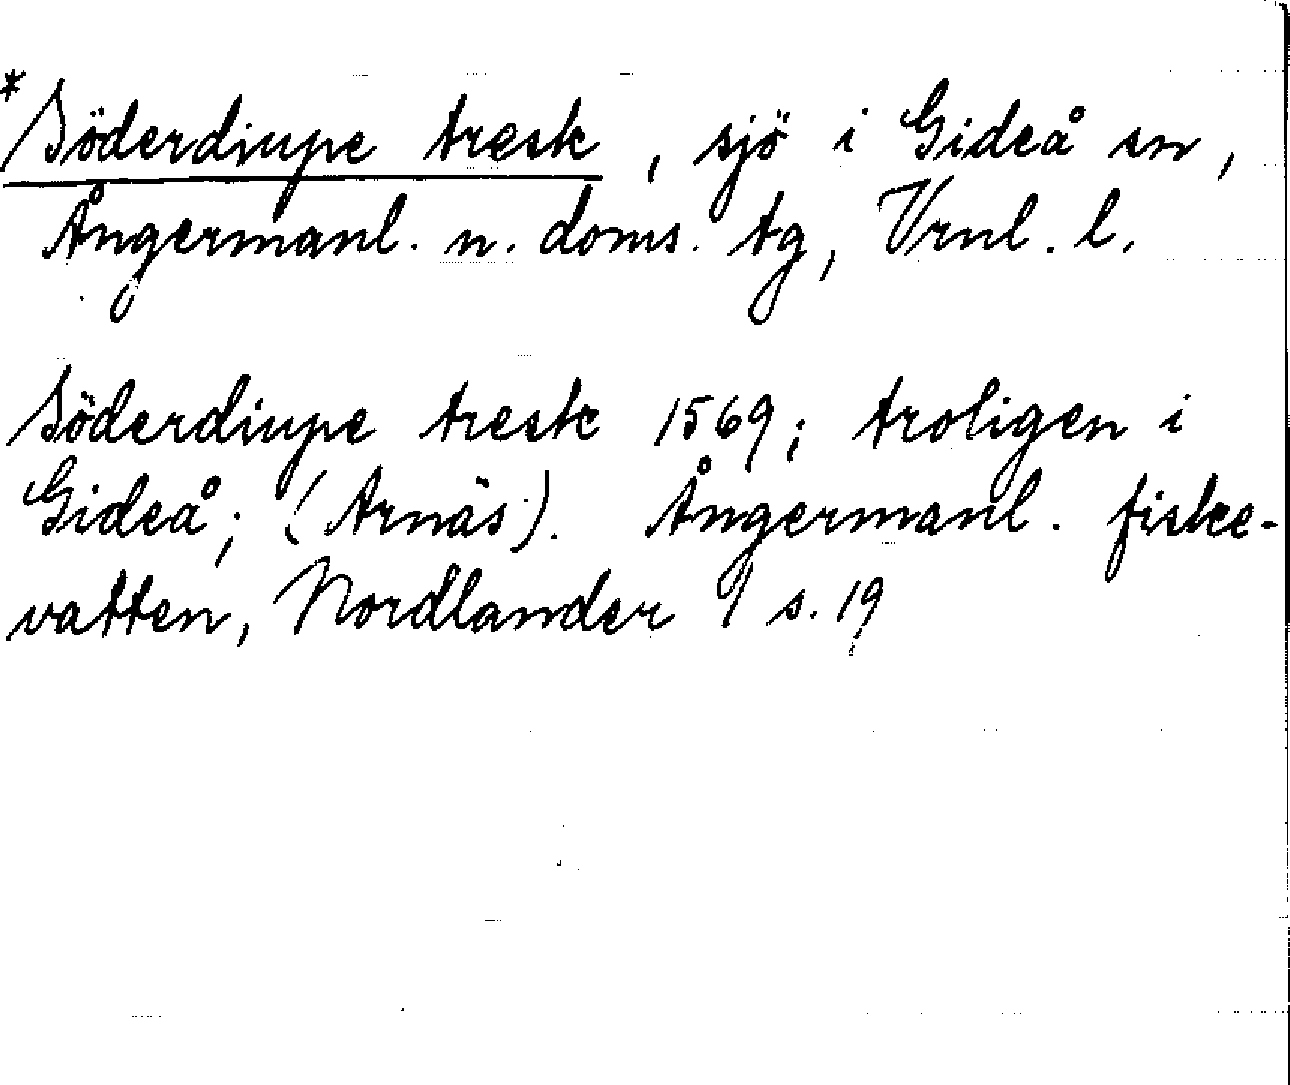 *Söderdiupe tresk, sjö i Gideå sn,
Ångermanl. n. doms. tg, Vrnl. l.
Söderdiupe tresk 1569; troligen i
Gideå; (Arnäs). Ångermanl. fiske-
vatten, Nordlander I s. 19